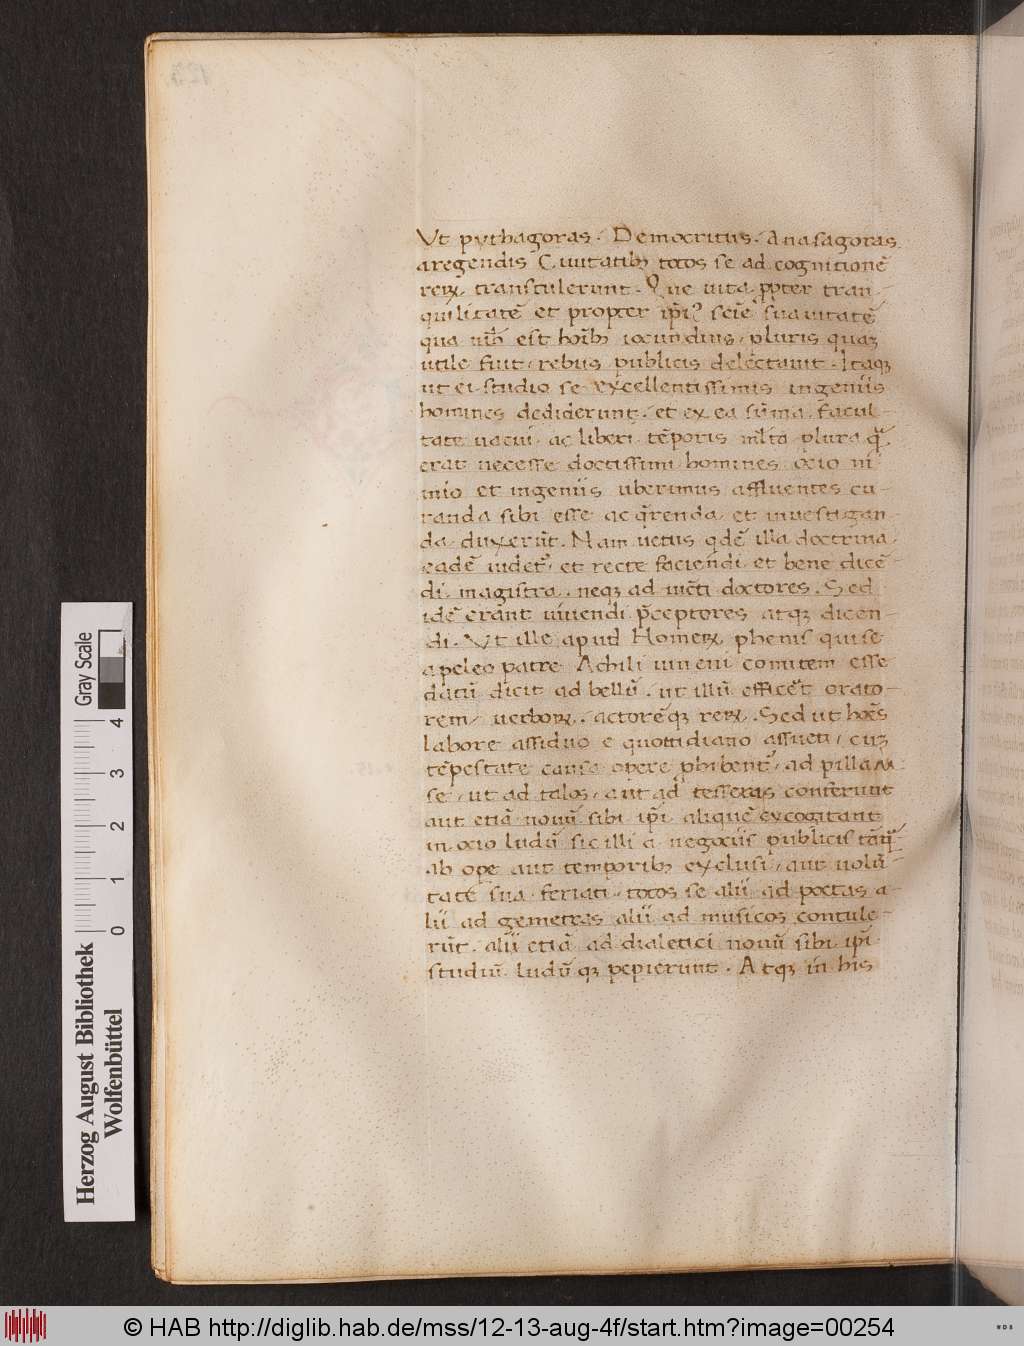 Vt pythagoras. Democritus. Anasagoras
aregendis Ciuitatibꝫ totos se ad cognitionē
reꝝ transtulerunt. Que uita ꝓpter tran-
quilitatē et propter ip̄iꝰ sciē suauitatē
qua nil est hoīb iocundius, pluris quaꝫ
utile fuit, rebus publicis delectauit. Itaqꝫ
ut ei studio se excellentissimis ingeniis
homines dediderunt. et ex ea sūma facul-
tate uacui ac liberi tēporis ml̄to plura q̄
erat necesse doctissimi homines ocio ni-
mio et ingeniis uberimus affluentes cu-
randa sibi esse ac q̄renda, et inuestigan
da duxerūt. Nam uetus qdē illa doctrina
eadē uidetꝰ et recte faciendi et bene dicē-
di. magistra. neqꝫ ad iucti doctores. Sed
idē erant uiuendi p̄ceptores atqꝫ dicen-
di. Vt ille apud Homeꝝ phenis qui se
a peleo patre Achili iuueni comitem esse
datū dicit ad bellū. ut illū efficet orato-
rem, uerboꝝ. actorēqꝫ reꝝ. Sed ut hoēs
labore assiduo e quottidiano assueti, cuꝫ
tēpestate causa opere ꝓhibentꝰ, ad pillam
se, ut ad talos, aut ad tesseras conferunt
aut etiā nouū sibi ip̄i aliquē excogitant
in ocio ludū sic illi a negociis publicis tāq̄
ab ope aut temporibꝫ exclusi, aut uolū
tate sua feriati, totos se alii ad poetas a-
lii ad gemetras alii ad musicos contule-
rūt. alii etiā ad dialetici nouū sibi ip̄i
studiū ludū qꝫ pepierunt. Atqꝫ in his
Herzog August Bibliothek
Wolfenbüttel
0 1 2 3 4
Gray Scale
© HAB http://diglib.hab.de/mss/12-13-aug-4f/start.htm?image=00254